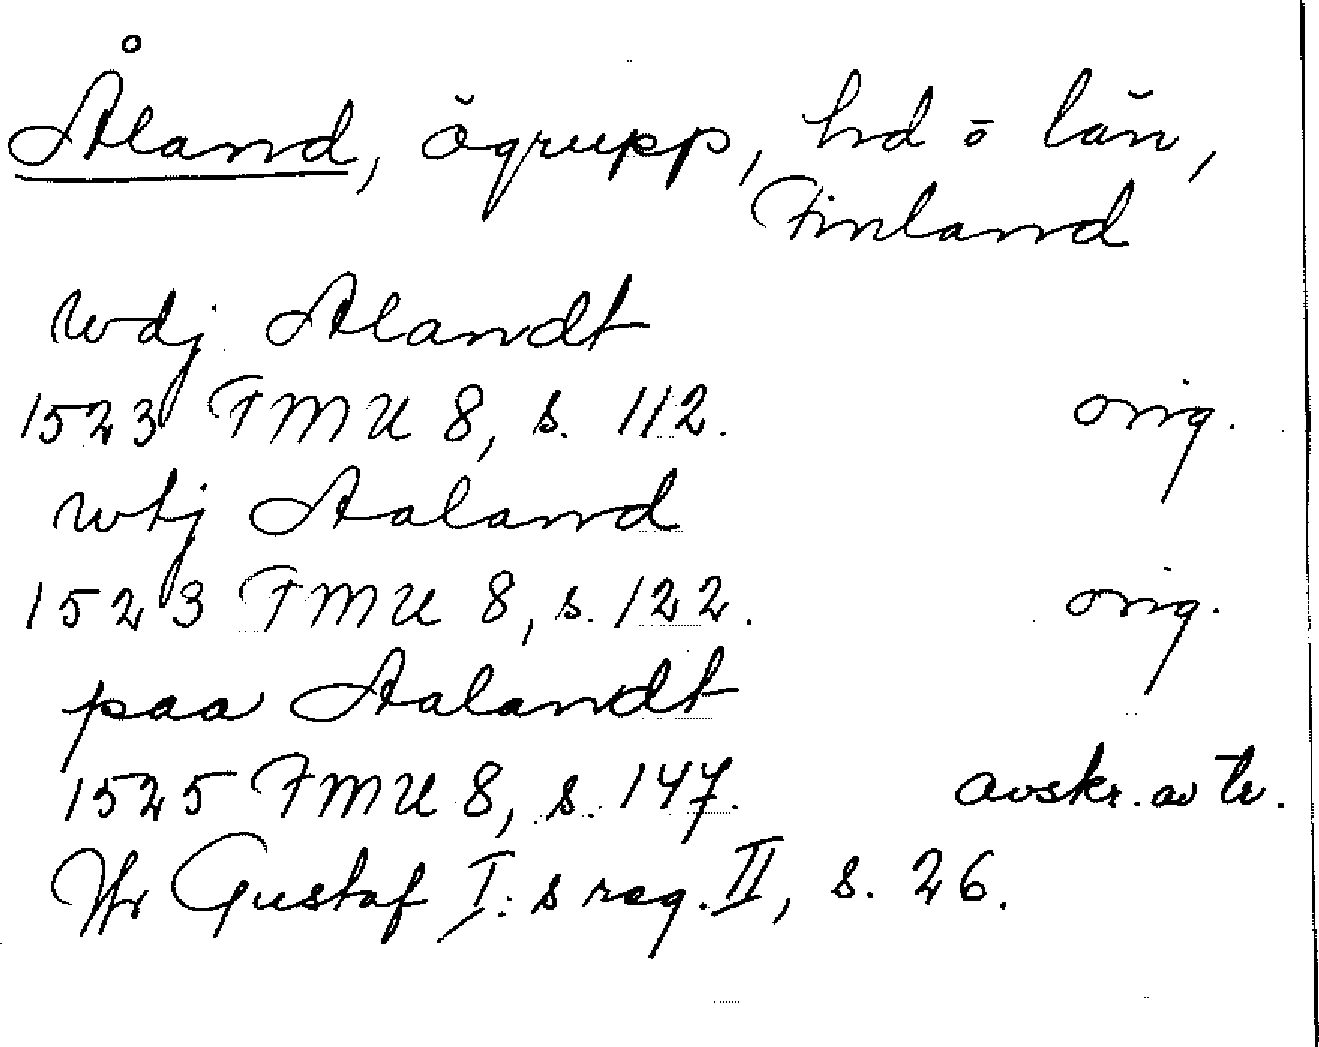 Åland, ögrupp, hd o län,
Finland
wdj Alandt
1523 FMU 8, s. 112. orig.
wtj Aaland
1523 FMU 8, s. 122. orig.
paa Aalandt
1525 FMU 8, s. 147. avskr. av tr.
Jfr Gustaf I:s reg. II, s. 26.